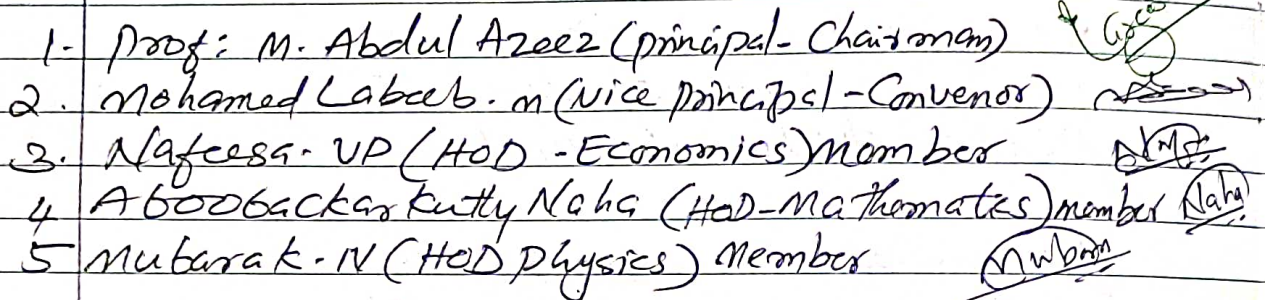 1- Prof: M. Abdul Azeez (principal- Chairman)
2. Mohamed Labeeb. m (Vice Principal - Convenor)
3. Nafeesa. UP (HOD - Economics) Member
4 Aboobackar Kutty Naha (HOD-Mathematics) member Naha
5 Mubarak. N (HOD Physics) Member Mubarn